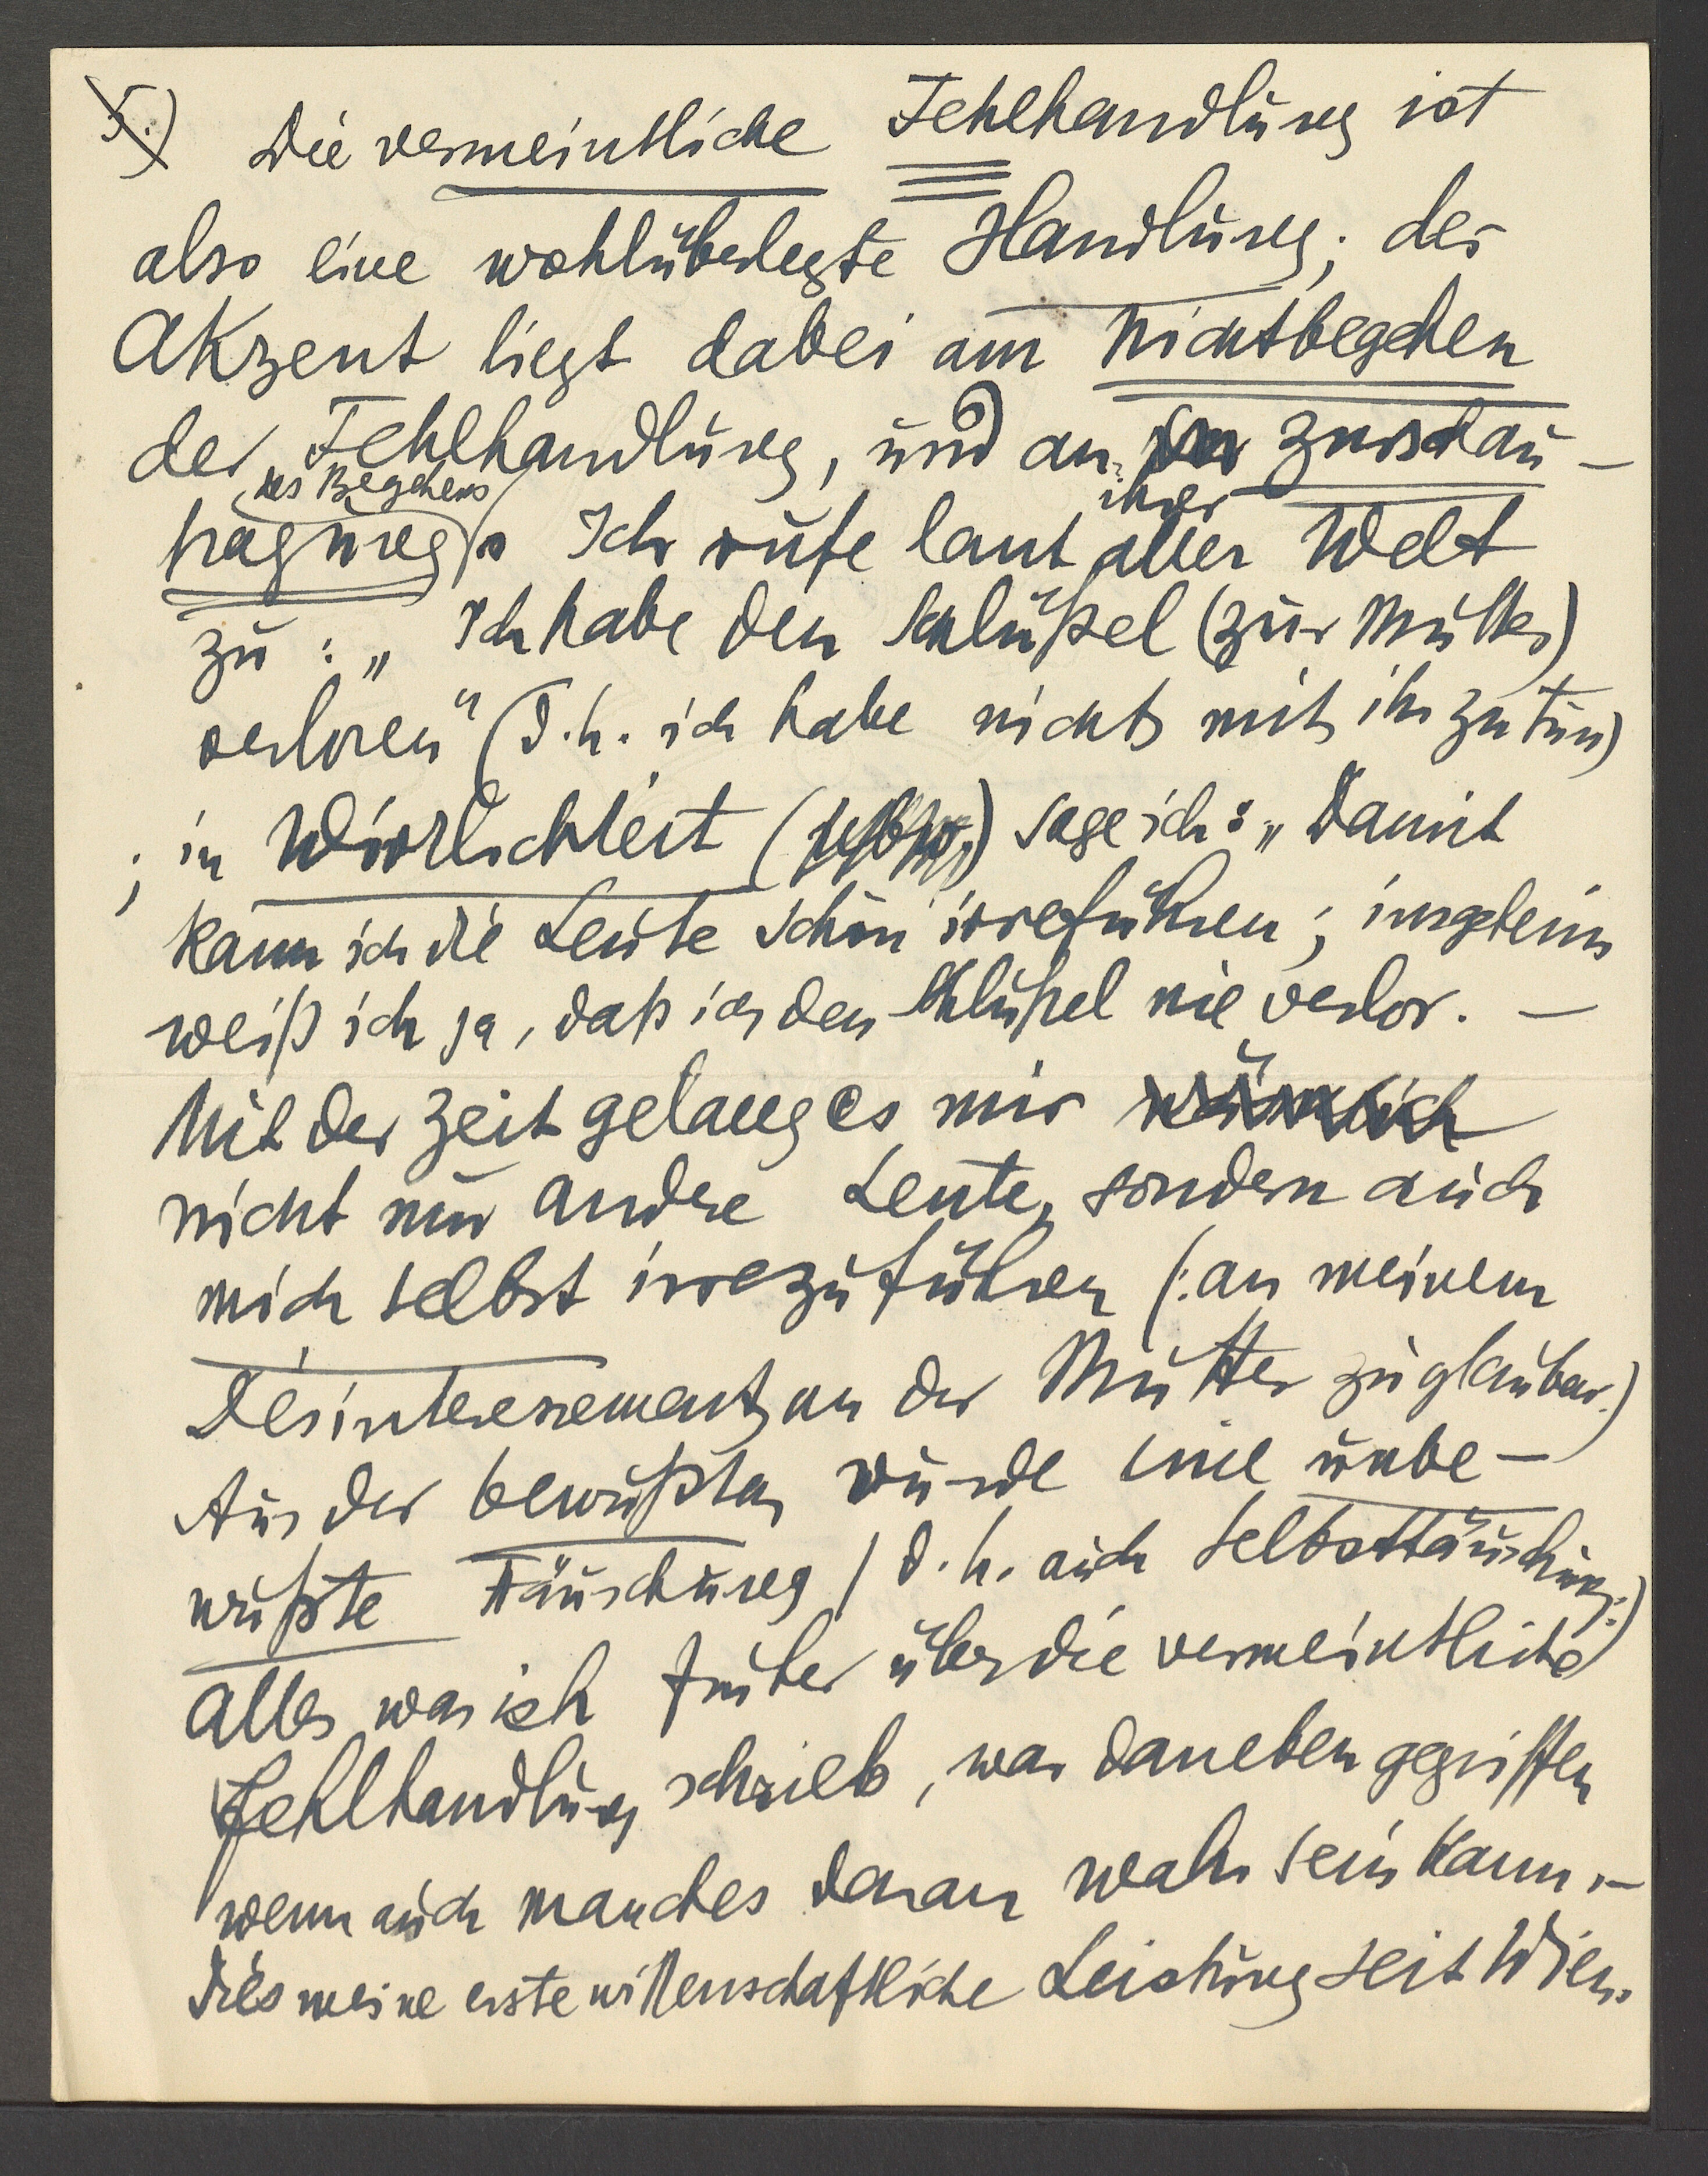 5.) Die vermeintliche Fehlhandlung ist
also eine wohlüberlegte Handlung; der
Akzent liegt dabei am Nichtbegehen
der Fehlhandlung, und an der Zurschau-
des Begehens ihrer
tragung. Ich rufe laut aller Welt
zu: „Ich habe den Schlüßel (zur Mutter)
verloren" (d.h. ich habe nichts mit ihr zu tun)
; in Wirklichkeit sage ich: „Damit
kann ich die Leute schön irreführen; insgeheim
weiß ich ja, daß ich den Schlüßel nie verlor. –
Mit der Zeit gelang es mir nämlich
nicht nur andre Leute, sondern auch
mich selbst irrezuführen (: an meinem
Desinteressement an der Mutter zu glauben.)
Aus der bewußten wurde eine unbe-
wußte Täuschung / d.h. auch Selbsttäuschung:)
Alles was ich früher über die vermeintliche
Fehlhandlung schrieb, war daneben gegriffen
wenn auch manches daran wahr sein kann. –
Dies meine erste wissenschaftliche Leistung seit Wien.